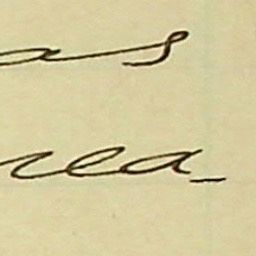 as
rea_